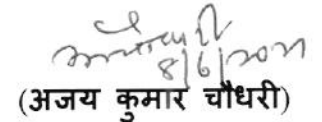 8/6/2021
(अजय कुमार चौधरी)